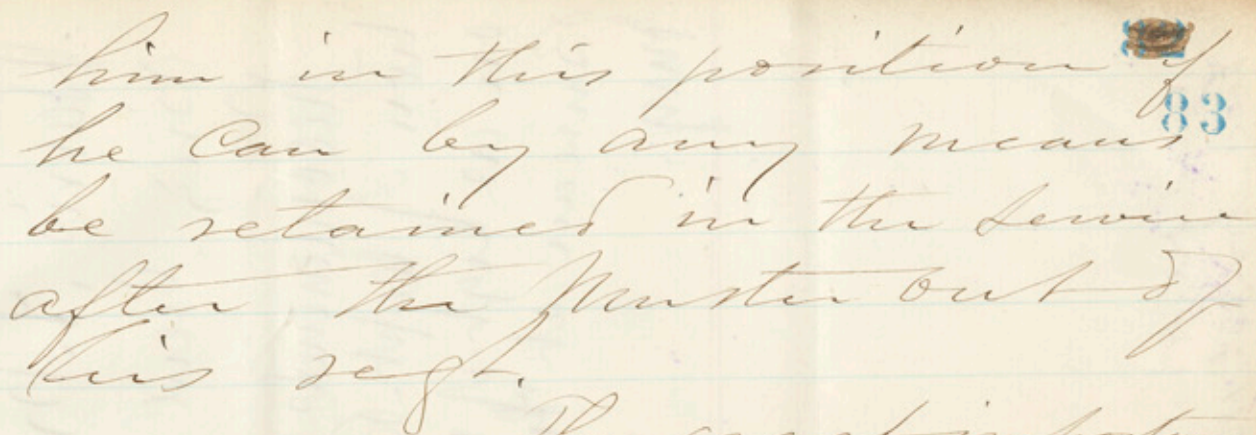 him in this position if
83
he can by any means
be retained in the service
after the Muster out of
his regt.
The